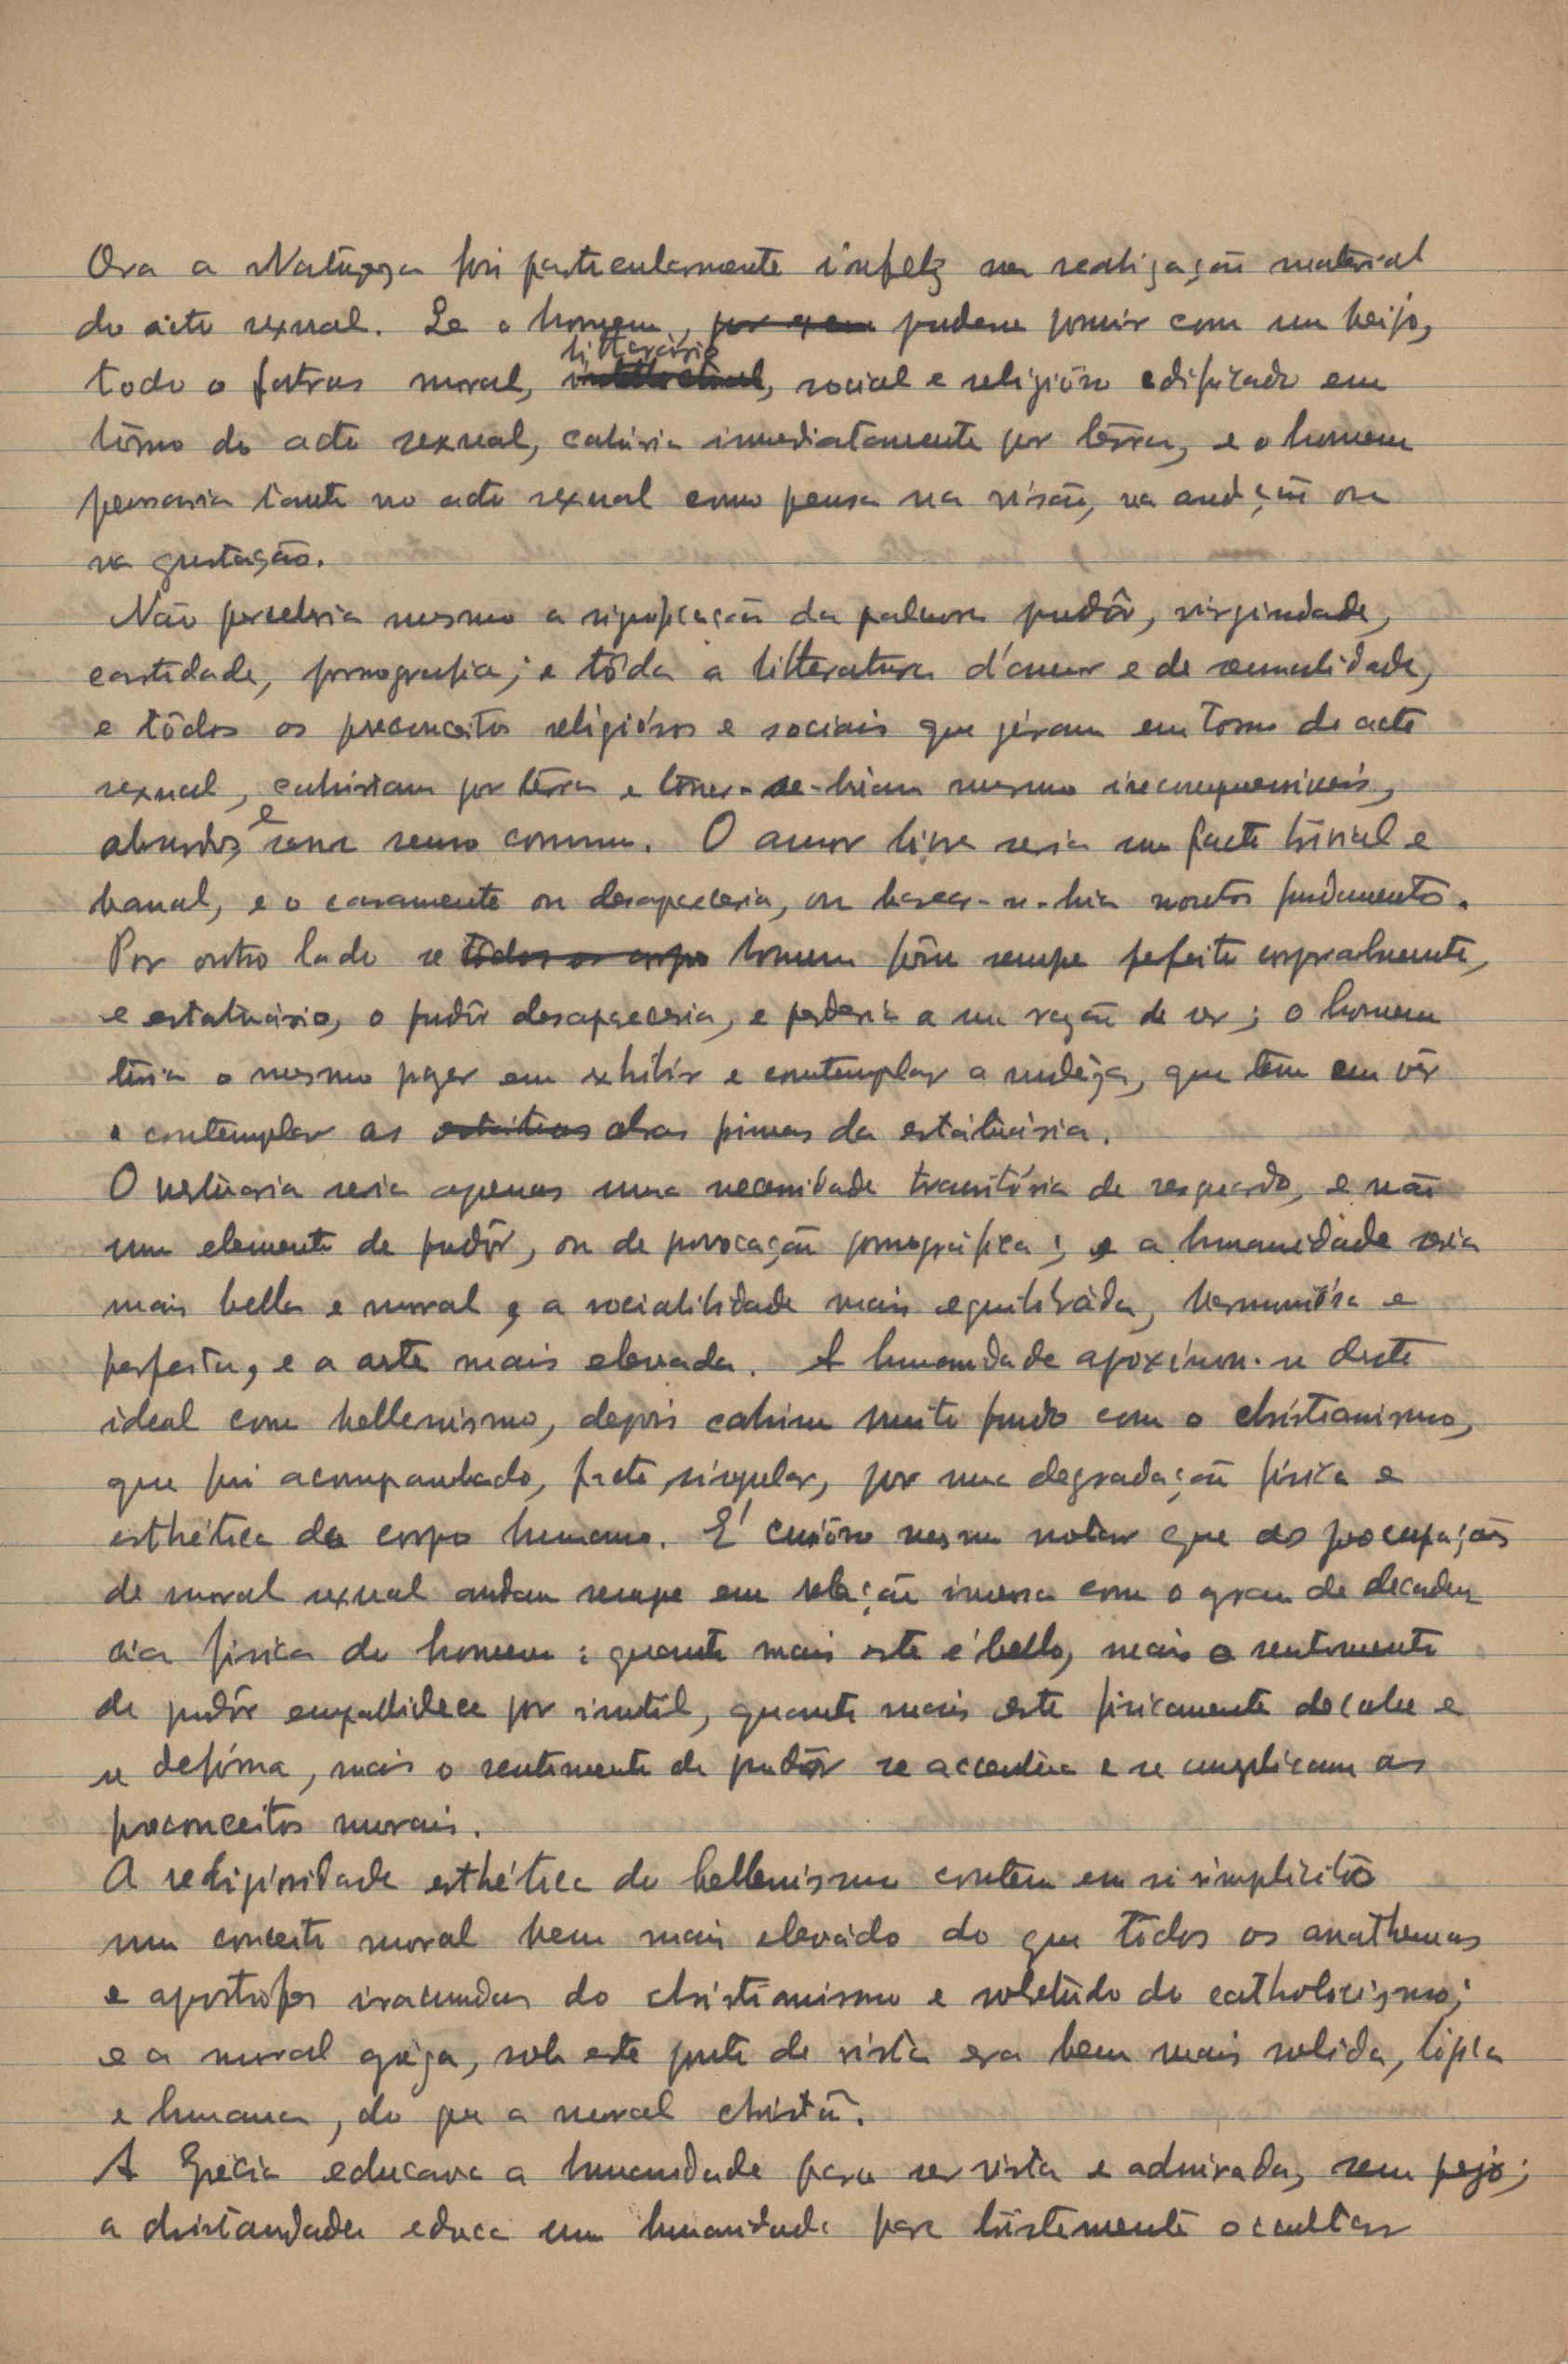 Ora a Natureza foi particularmente infeliz na realização material
do acto sexual. Se o homem, por exem pudesse parir com um beijo,
todo o fatras moral, litterário intellectual, social e religióso edificado em
tôrno do acto sexual, cahiria immediatamente por terra, e o homem
pensaria tanto no acto sexual como pensa na visão, na audição ou
na gustação.
Não perceberia mesmo a significação da palavra pudôr, virgindade,
castidade, pornografia; e tôda a litteratura d'amor e de sexualidade,
e tôdos os preconceitos religiósos e sociais que giram em torno do acto
sexual, cahiriam por terra e tornar-se-hiam mesmo incomprensiveis,
absurdos, e sem senso commum. O amor livre seria um facto trivial e
banal, e o casamento ou desapareceria, ou basear-se-hia noutros fundamentos.
Por outro lado se todos os corpo homem fôsse sempre perfeito corporalmente,
e estatuário, o pudôr desapareceria, e perderia a sua razão de ser; o homem
teria o mesmo prazer em exhibir e contemplar a nudêza, que tem em vêr
e contemplar as estátuas obras primas da estátuária.
O vestuario seria apenas uma necessidade transitória de resguardo, e não
um elemento de pudôr, ou de provocação pornográfica; e a humanidade seria
mais bella e moral e a sociabilidade mais equilibráda, harmoniósa e
perfeita, e a arte mais elevada. A humanidade aproximou-se deste
ideal com hellenismo, depois cahiu muito fundo com o christianismo,
que foi acompanhado, facto singular, por uma degradação física e
esthética do corpo humano. E' curióso mesmo notar que as preocupações
de moral sexual andam sempe em relação inversa com o grau de decaden
cia física do homem: quanto mais este é bello, mais o sentimento
de pudôr empallidece por inutil, quanto mais este fisicamente decahe e
se defórma, mais o sentimento de pudôr se accentúa e se complicam os
preconceitos morais.
A religiosidade esthética do hellenismo contem em si implicito
um conceito moral bem mais elevádo do que todos os anathemas
e apostrofes iracundas do christianismo e sobretudo do catholicismo;
e a moral grêga, sob este ponto de vista era bem mais solida, lógica
e humana, do que a moral christã.
A Grécia educava a humanidade para ser vista e admirada, sem pejo;
a christandade educa uma humanidade para tristemente occultar